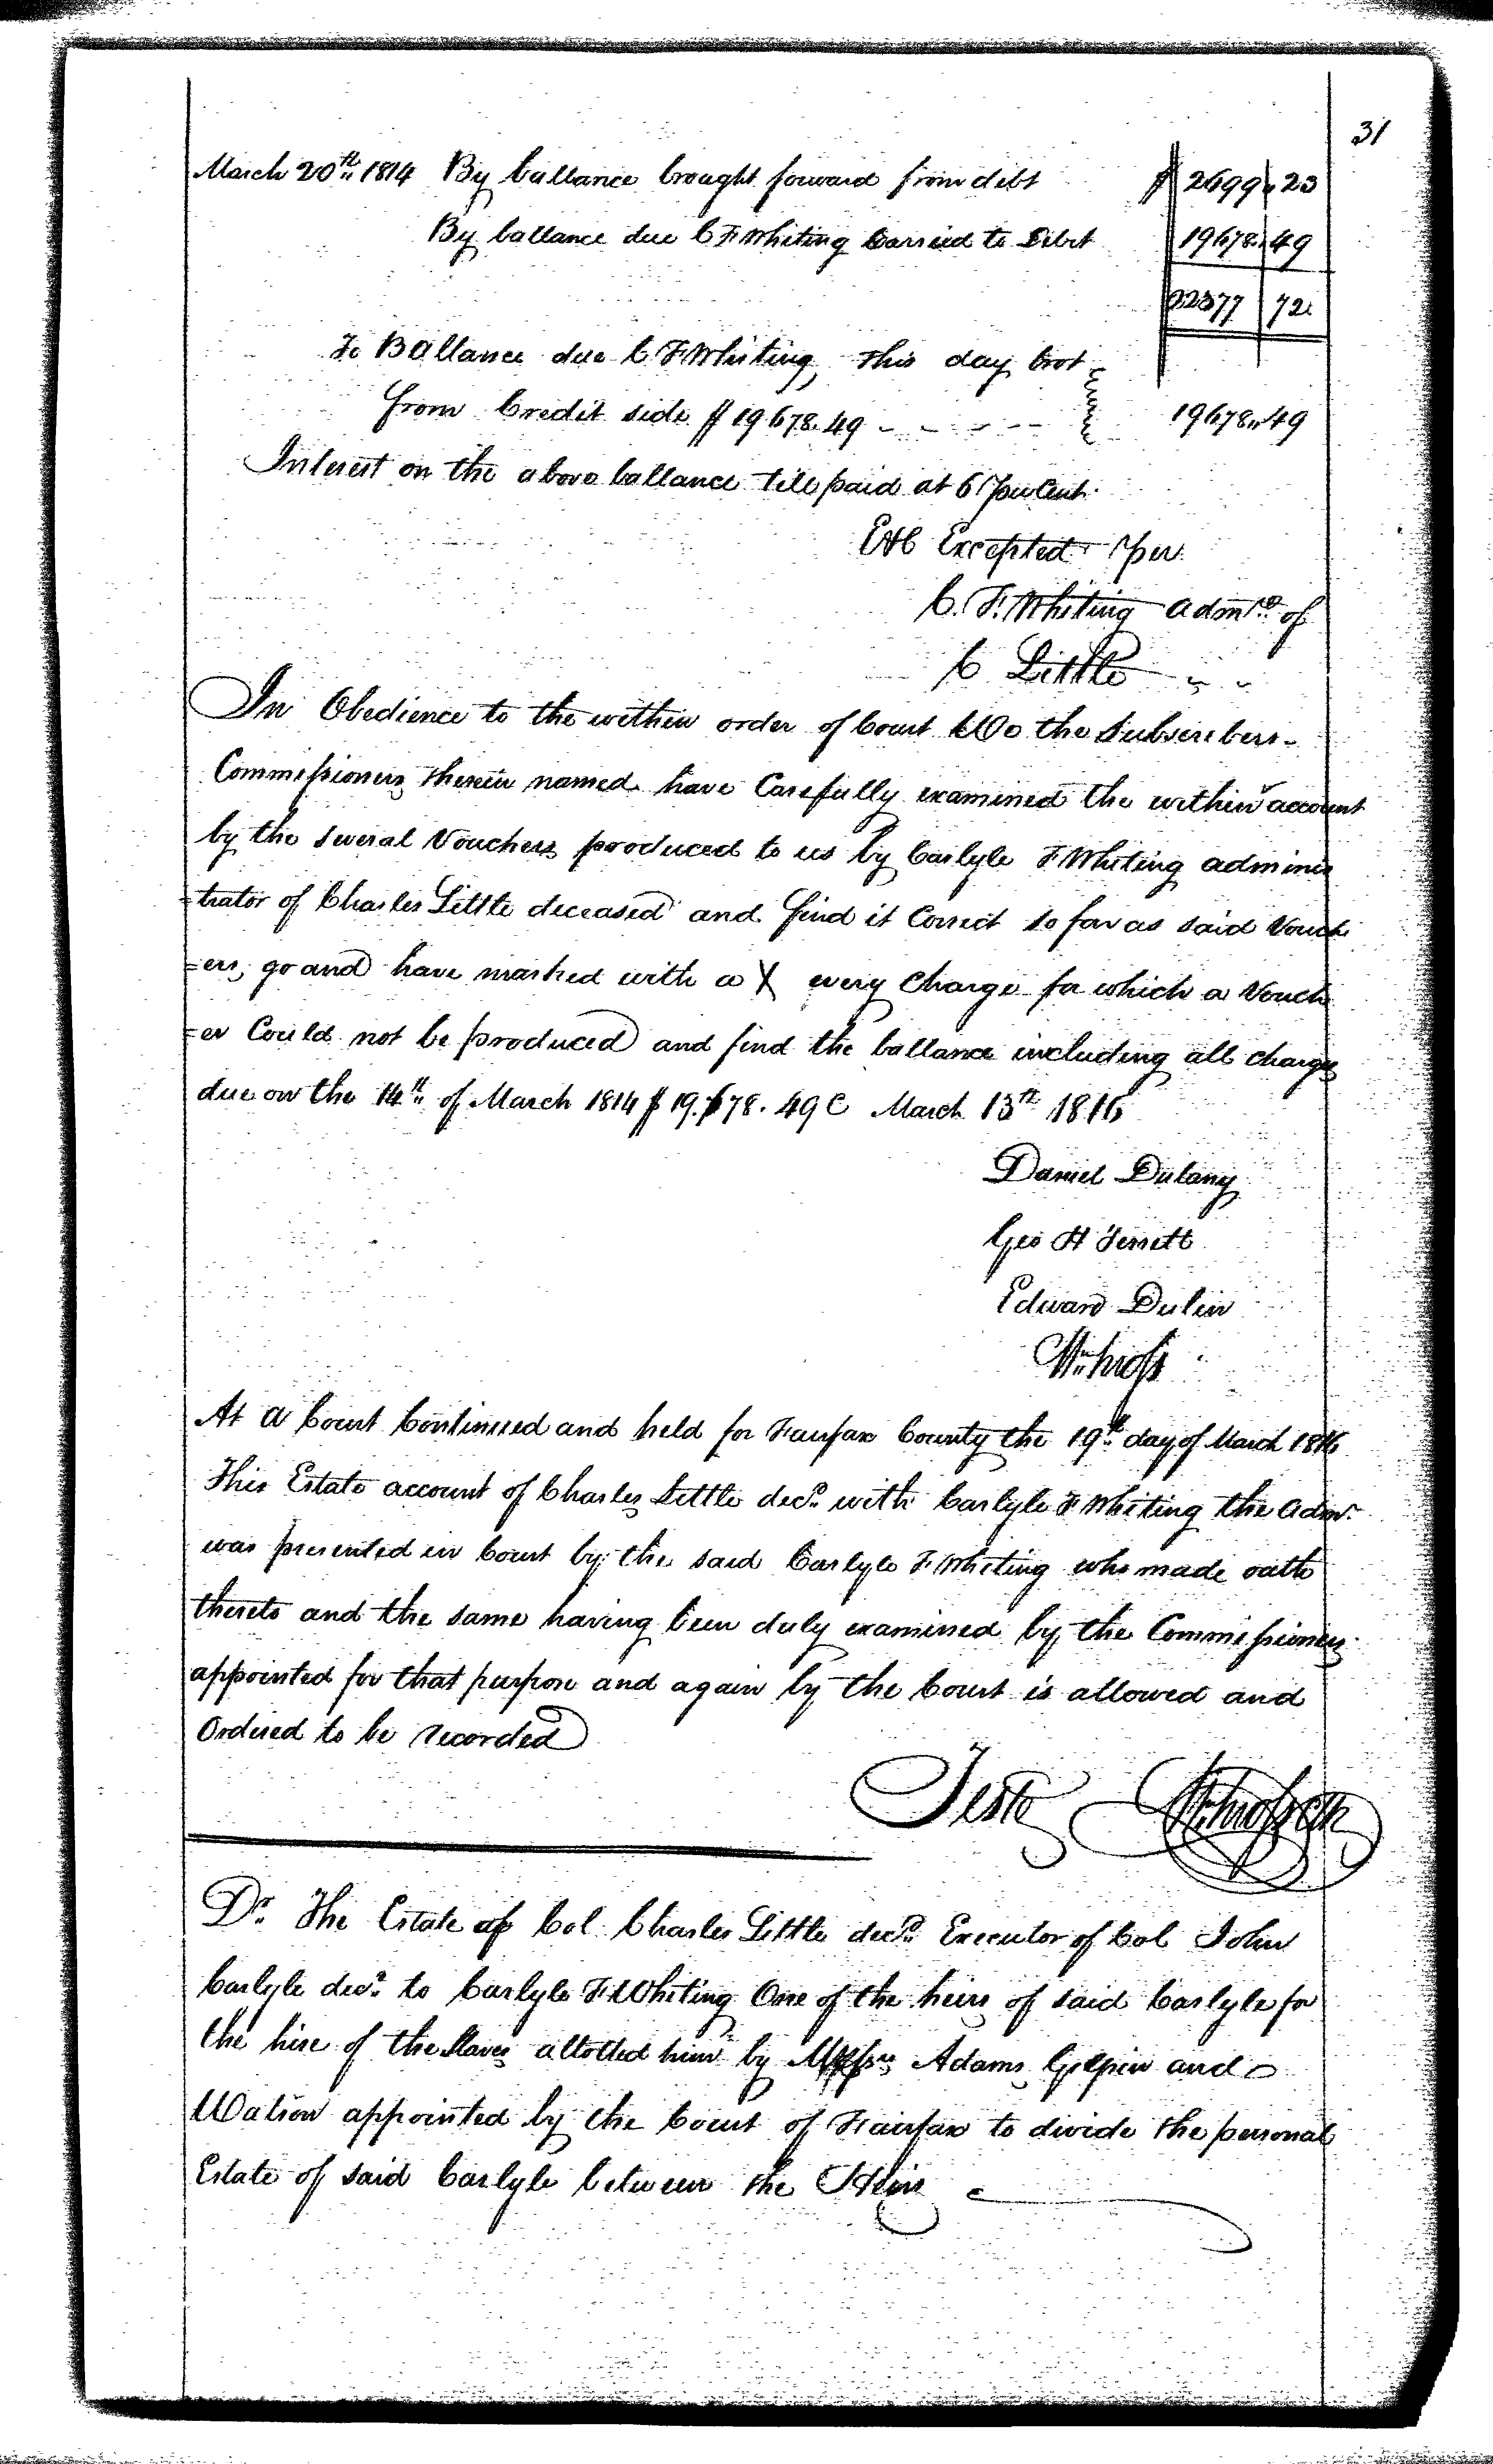 31
March 20th 1814 By ballance brought forward from debt $ 2699 " 23
By ballance due C F Whiting Carried to Debt 19678 " 49
22377 72
To Ballance due C F Whiting, this day brot
from Credit side $ 19678.49 - - - - - 19678 " 49
Interest on the above ballance till paid at 6 per Cent.
Excepted per
C. F. Whiting admtr of
C Little
In Obedience to the within order of Court We the Subscribers
Commissioners therein named have Carefully examined the within account
by the several Vouchers produced to us by Carlyle F Whiting adminis
=trator of Charles Little deceased and find it Correct so far as said Vouch
=ers, go and have marked with a X every Charge for which a Vouch
=er Could not be produced and find the ballance including all charges
due on the 14th of March 1814 $ 19.678.49 C March 13th 1816
Daniel Dulany
Geo H Terrett
Edward Dulin
At a Court Continued and held for Fairfax County the 19th day of March 1816
This Estate account of Charles Little decd with Carlyle F Whiting the admr
was presented in Court by the said Carlyle F Whiting who made oath
thereto and the same having been duly examined by the Commissioners
appointed for that purpose and again by the Court is allowed and
Ordered to be recorded
Teste
Dr. The Estate of Col Charles Little decd Executor of Col John
Carlyle decd to Carlyle F Whiting One of the heirs of said Carlyle for
the hire of the Slaves allotted him by Messrs Adams Gilpin and
Watson appointed by the Court of Fairfax to divide the personal
Estate of said Carlyle between the Heirs